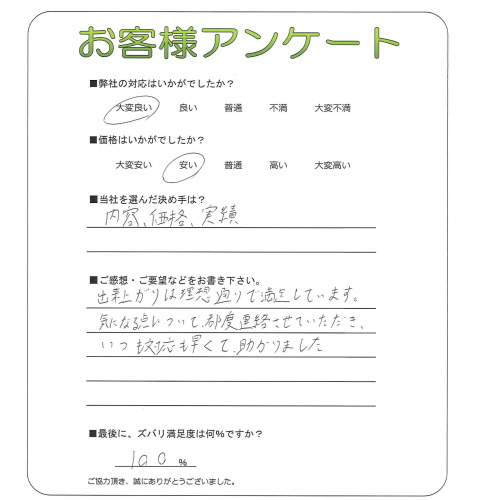 お客様アンケート
■弊社の対応はいかがでしたか？
大変良い 良い 普通 不満 大変不満
■価格はいかがでしたか？
大変安い 安い 普通 高い 大変高い
■当社を選んだ決め手は？
内容、価格、実績
■ご感想・ご要望などをお書き下さい。
出来上がりは理想通りで満足しています。
気になる点について、都度連絡させていただき、
いつも対応も早くて、助かりました
■最後に、ズバリ満足度は何%ですか？
100 %
ご協力頂き、誠にありがとうございました。